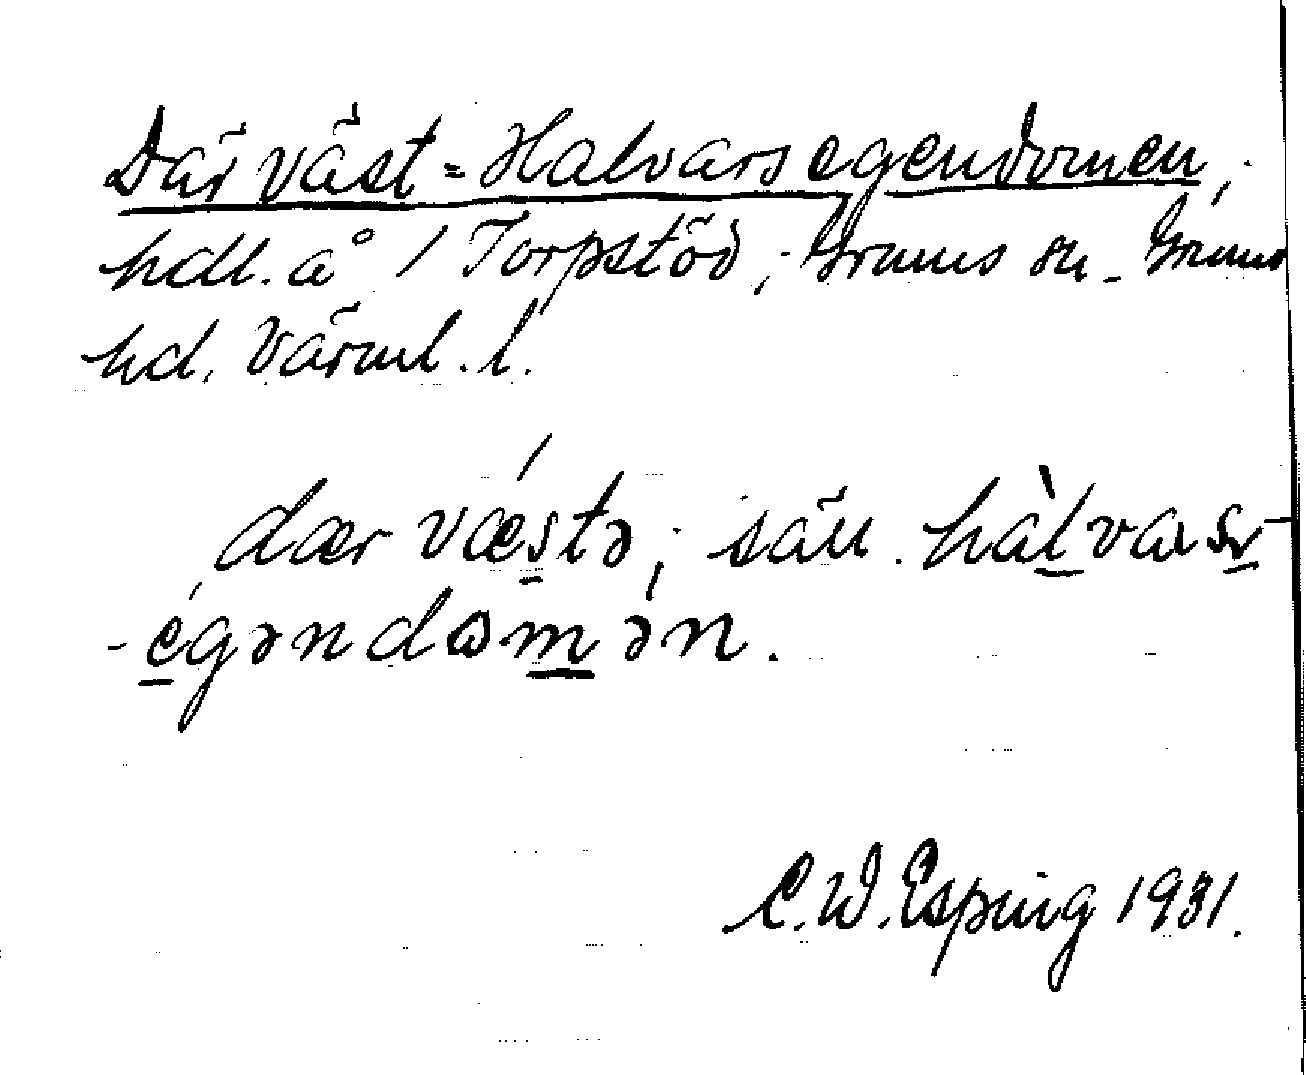 Där väst = Halvarsegendomen;
hdl. å / Torpstöd; Grums sn. Grums
hd. Värml. l.
dær vǽstə; säll. hàlvas̨-
-égəndωmən.
C.W. Esping 1931.